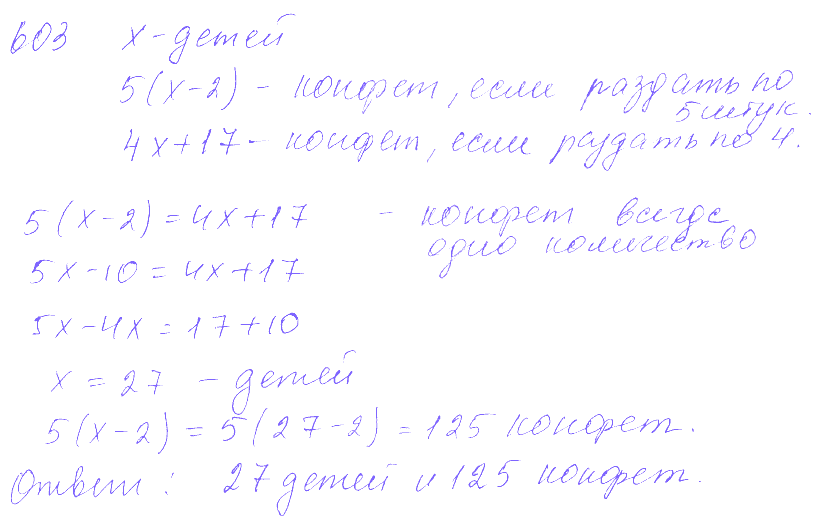 603 x - детей
5(x-2) - конфет, если раздать по
5 штук.
4x+17 - конфет, если раздать по 4.
5(x-2) = 4x+17 - конфет всегда
одно количество
5x-10 = 4x+17
5x-4x = 17+10
x = 27 - детей
5(x-2) = 5(27-2) = 125 конфет.
Ответ: 27 детей и 125 конфет.